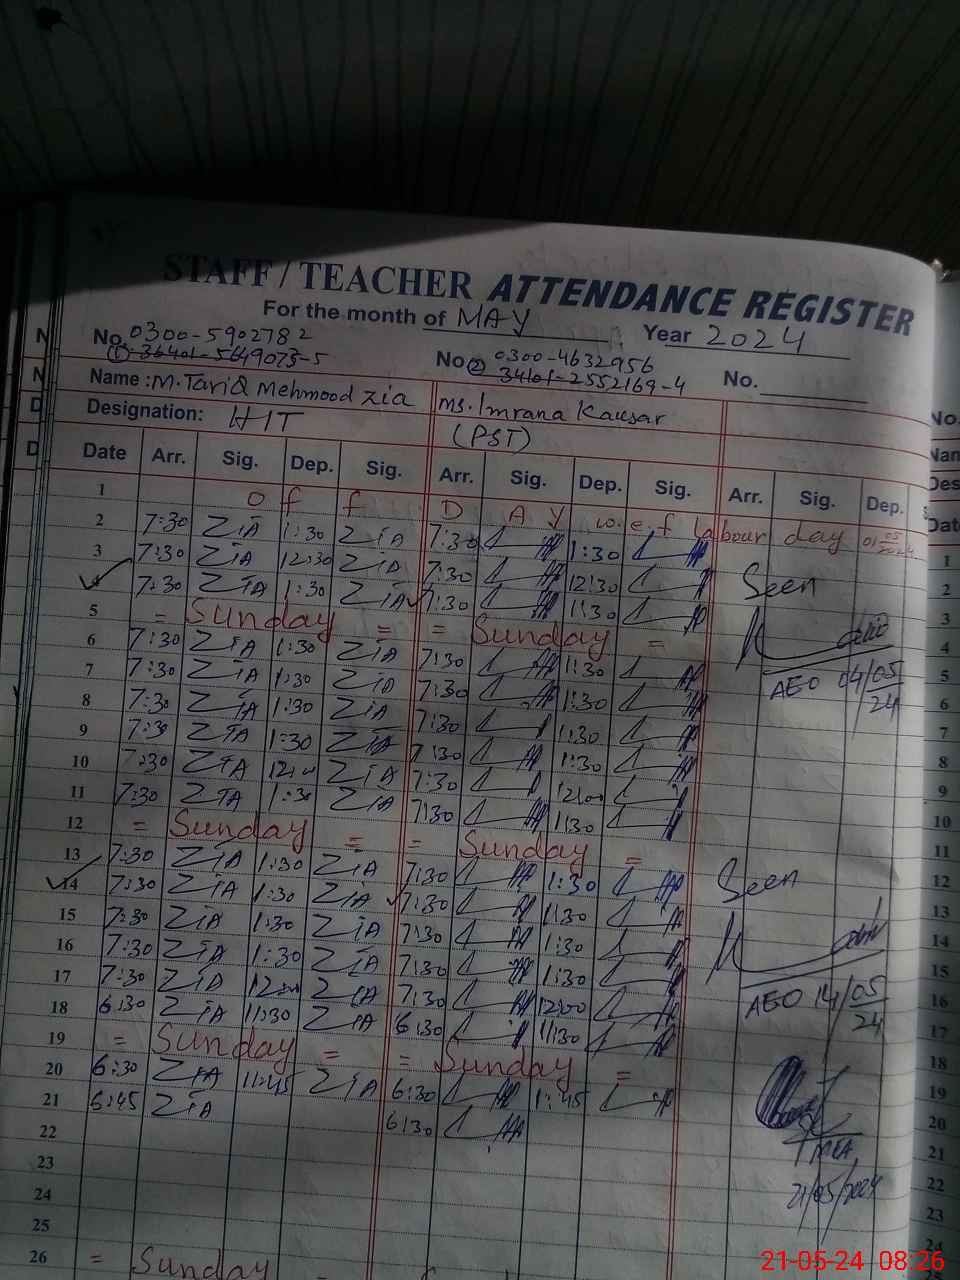 STAFF / TEACHER ATTENDANCE REGISTER
For the month of MAY Year 2024
No. 0300-5902782 No 0300-4632956 No.
① 36401-5649073-5 ② 34101-2552169-4
Name : M. Tariq Mehmood Zia Ms. Imrana Kausar
Designation: HIT (PST)
Date Arr. Sig. Dep. Sig. Arr. Sig. Dep. Sig. Arr. Sig. Dep.
1 O f f D A Y w.e.f labour day 01 05 2024
2 7:30 ZiA 1:30 ZiA 7:30 1:30
3 7:30 ZiA 12:30 ZiA 7:30 12:30 Seen
4 7:30 ZiA 1:30 ZiA 7:30 1:30
5 = Sunday = = Sunday =
6 7:30 ZiA 1:30 ZiA 7:30 1:30 AEO 04/05
7 7:30 ZiA 1:30 ZiA 7:30 1:30 24
8 7:30 ZiA 1:30 ZiA 7:30 1:30
9 7:30 ZiA 1:30 ZiA 7:30 1:30
10 7:30 ZiA 12:00 ZiA 7:30 12:00
11 7:30 ZiA 1:30 ZiA 7:30 1:30
12 = Sunday = = Sunday =
13 7:30 ZiA 1:30 ZiA 7:30 1:30 Seen
14 7:30 ZiA 1:30 ZiA 7:30 1:30
15 7:30 ZiA 1:30 ZiA 7:30 1:30
16 7:30 ZiA 1:30 ZiA 7:30 1:30
17 7:30 ZiA 12:00 ZiA 7:30 12:00 AEO 14/05
18 6:30 ZiA 11:30 ZiA 6:30 11:30 24
19 = Sunday = = Sunday =
20 6:30 ZiA 11:45 ZiA 6:30 11:45
21 6:45 ZiA 6:30
22 MEA
23 21/05/2024
24
25
26 = Sunday
21-05-24 08:26